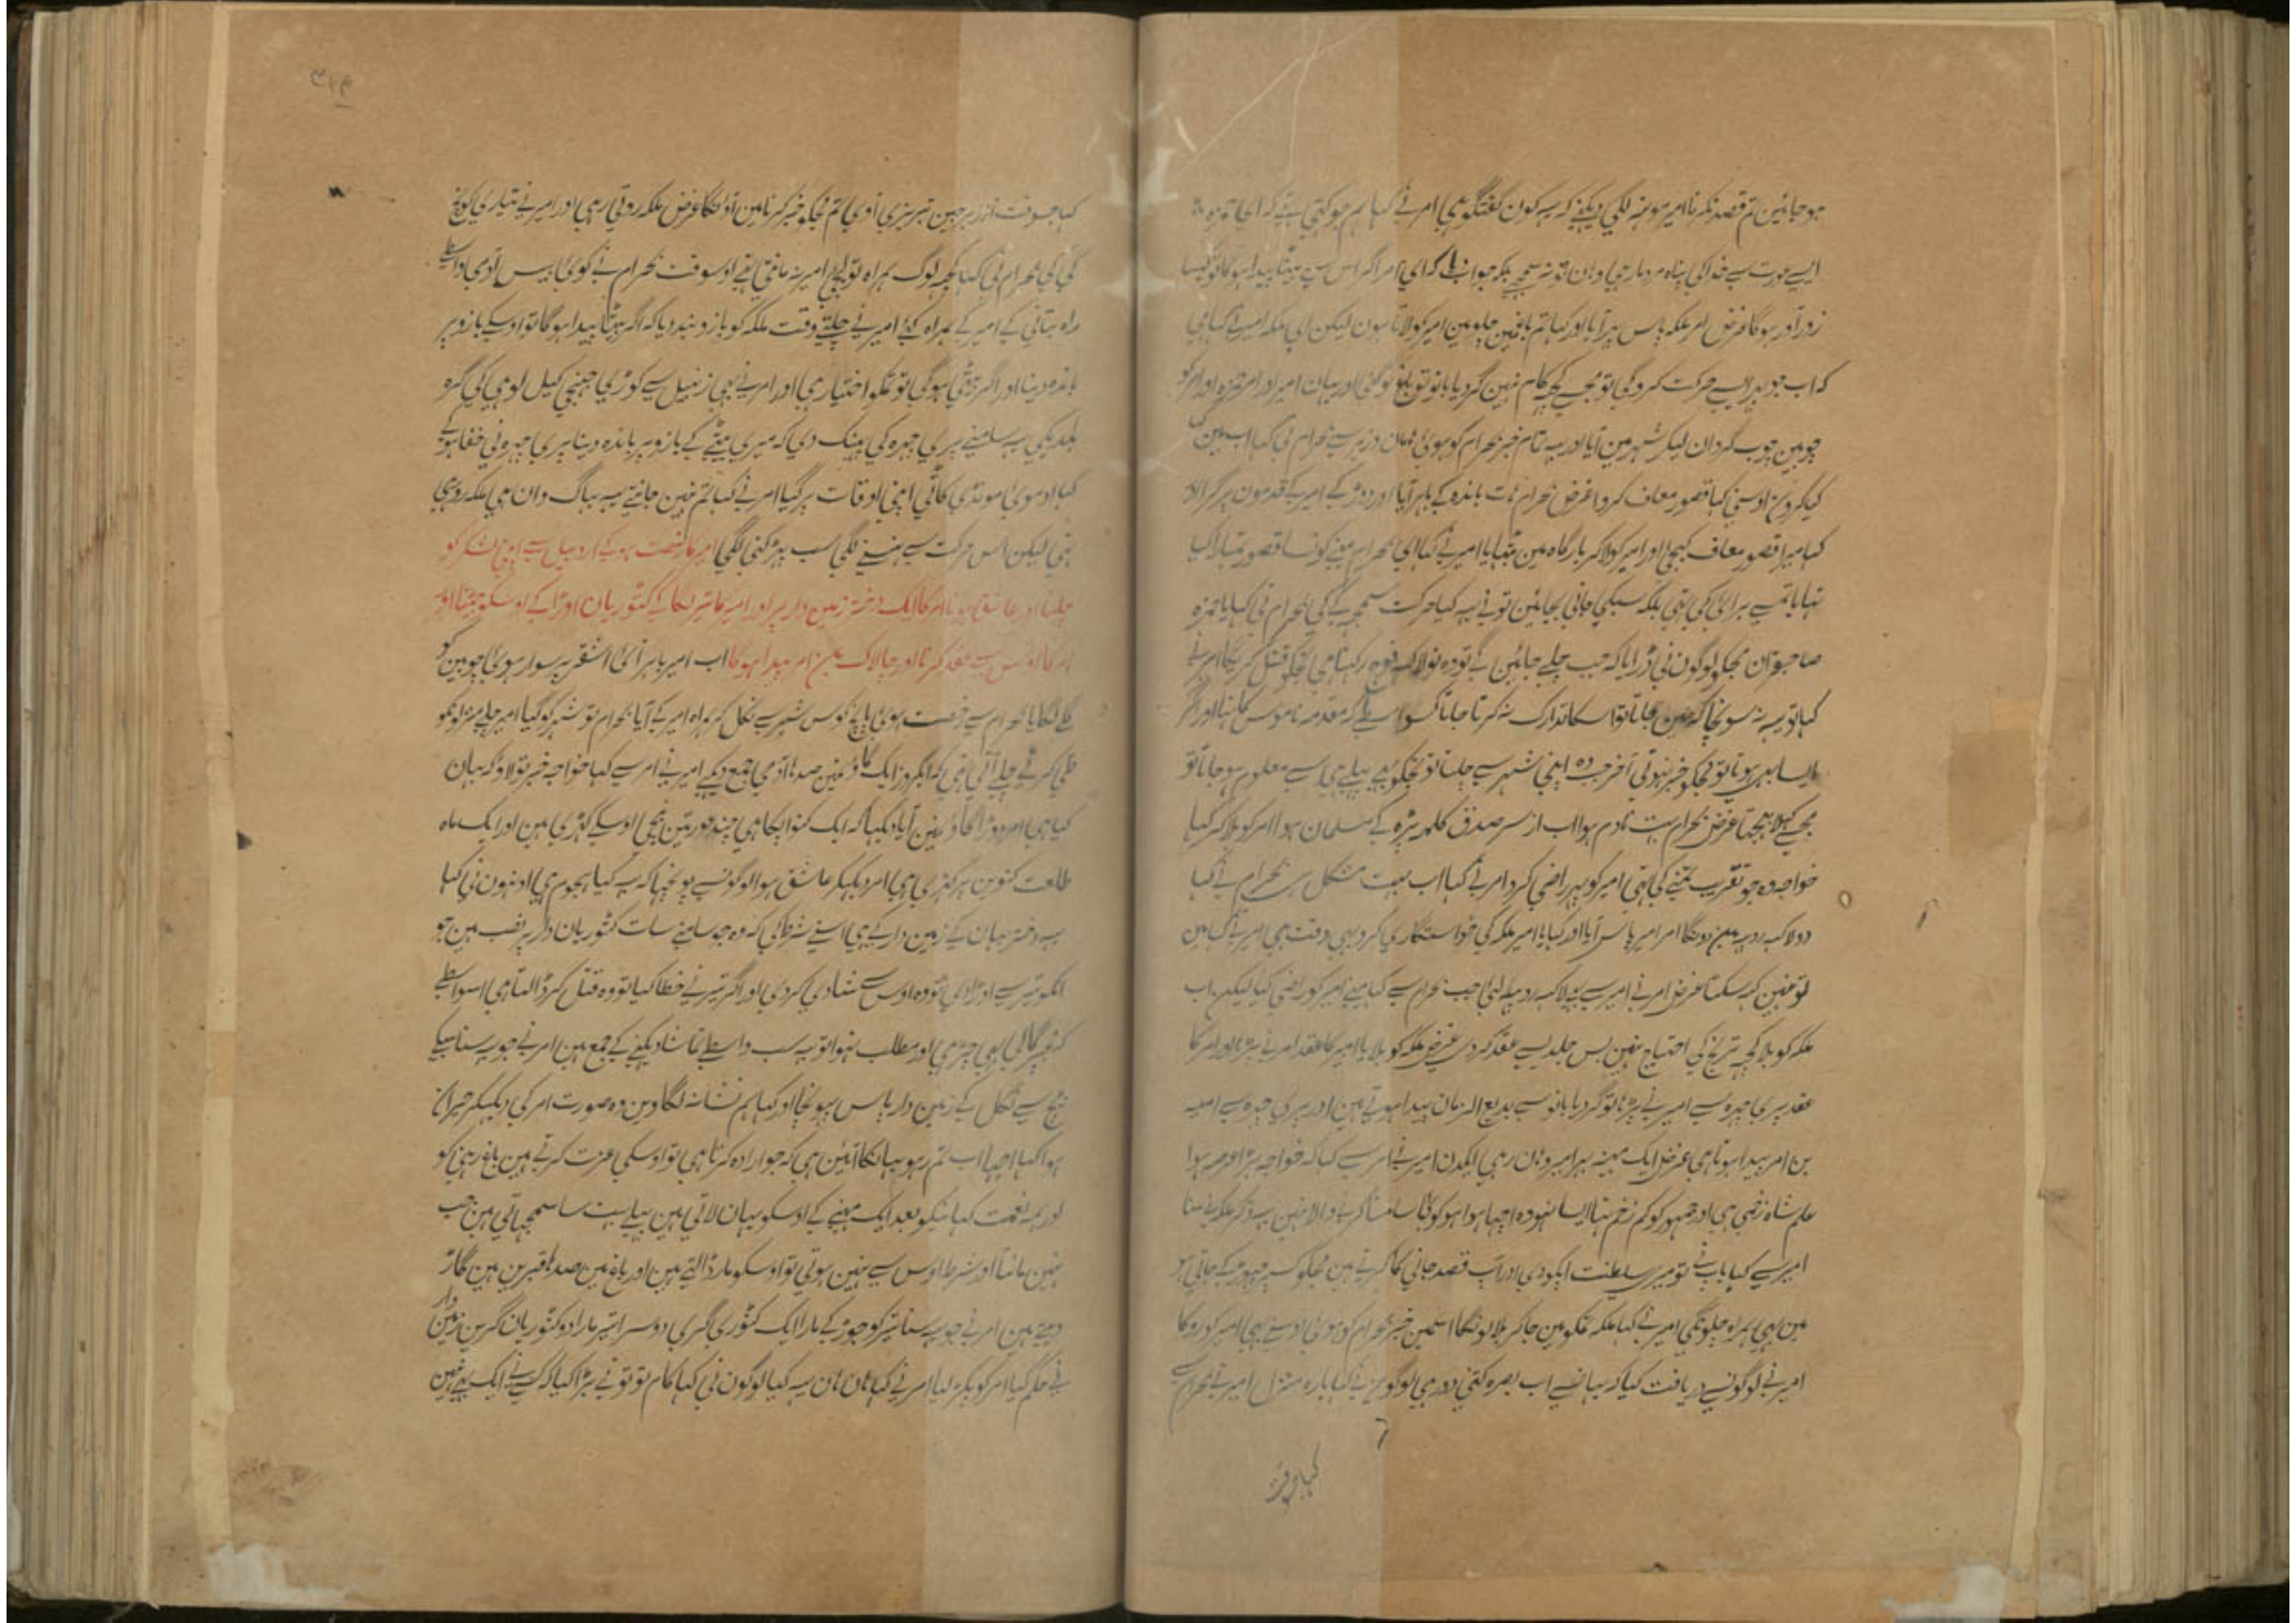 ہو جائین تم قصد نکرنا امیر مونہہ لگی دیکہنے کہ یہ کون گفتگو ہی امر نے کہا ہم جو کہتی تہے کہ ای حمزہ
ایسے عورت سے خدا کی پناہ وہان تو نہ سمجہے بلکہ جواب کہ ای امر اگر اس سے بیٹا پیدا ہوگا تو کیسا
زور آور ہوگا غرض امر ملکہ پاس پہر آیا اور کہا تم باغمین چلو مین امیر کولاتا ہون لیکن ای ملکہ امیر نے کہا ہی
کہ اب جو پہر ایسے حرکت کروگی تو مجہے کچہہ کام نہین گردیا بانو تو باغ کو گئی اور یہان امیر اور امر حمزہ اور امر کو
چوبین چوب گردان لیکر شہر مین آیا اور یہ تمام خبر بہرام کو ہوئی وزیر سے بہرام نی کہا اب مین
کیا کرون اوسنی کہا قصور معاف کرو غرض بہرام ہات باندہ کے باہر آیا اور دوڑ کے امیر کے قدمون پر گرا اور
کہا میرا قصور معاف کیجئی اور امیر کو لاکر بارگاہ مین بٹہایا امیر نے کہا ای بہرام مینے کونسا قصور تمہارا کیا
تہا یا تمسے برائی کی تہی بلکہ سبکی جانی بچائین تو نے یہ کیا حرکت سمجہہ کے کی بہرام نی کہا یا حمزہ
صاحبقران مجہکو لوگون نی ڈرایا کہ جب چلے جائین گے تو وہ نو لاکہہ فوج رکہتا ہی تجکو قتل کریگا امیر نے
کہا تو یہ نہ سونچا کہ مین جاتا تو اسکا تدارک نہ کرتا جاتا کسواسطے کہ مقدمہ ناموس کا تہا اور اگر
ایسا بہی ہوتا تو مجکو خبر نہوتی آخر جب وہ اپنی شہر سے چلتا تو تجکو بہی پہلے ہی سے معلوم ہو جاتا تو
مجہے کہلا بہیجتا غرض بہرام بہت نادم ہوا اب از سر صدق کلمہ پڑہ کے مسلمان ہوا امر کو بلا کر کہا
خواجہ وہ جو تقریب تمنے کی تہی امیر کو پہر راضی کردو امر نے کہا اب بہت مشکل ہی بہرام نے کہا
دو لاکہہ روپیہ مین دونگا امر امیر پاس آیا اور کہا یا امیر ملکہ کی خواستگاری کرو یہی وقت ہی امیر نے کہا مین
تو نہین کہہ سکتا غرض امر نے امیر سے لاکہہ روپیہ لئی جب بہرام سے کہا مینے امیر کو راضی کیا لیکن اب
ملکہ کو بلا کچہہ تاریخ کی احتیاج نہین بس جلدیسے عقد کردی غرض ملکہ کو بلایا امیر کا عقد امر نے پڑہا اور امر کا
عقد پری چہرہ سے امیر نے پڑہا تو گردیا بانو سے بدیع الزمان پیدا ہوتے ہین اور پری چہرہ سے امیہ
بن امر پیدا ہوتا ہی غرض ایک مہینہ بہر امیر وہان رہی ایکدن امیر نے امر سے کہا کہ خواجہ بڑا عرصہ ہوا
علم شاہ زخمی ہی اور جمہور کو کم زخم تہا ایسا نہو وہ اچہا ہوا ہو کوئی سامنا کرنے والا نہین یہ ذکر ملکہ نے سنا
امیر سے کہا باپ نے تو میری سلطنت اپکو دی اور آپ قصد جانی کا کرتے ہین مجکو کسپر چہوڑ کے جاتی ہو
مین بہی ہمراہ چلونگی امیر نے کہا ملکہ تمکو مین جاکر بلا لونگا اسمین خبر بہرام کو ہوئی اوسنے بہی امیر کو روکا
امیر نے لوگونسے دریافت کیا کہ یہانسے اب بصرہ کتنی دور ہی لوگون نے کہا بارہ منزل امیر نے بہرام سے
کہا وقت
کہا جسوقت نوذر برجین تبریزی آوی تم مجکو خبر کرنا مین آونگا غرض ملکہ روتی رہی اور امیر نے تیاری کوچ
کی کی بہرام نی کہا کچہہ لوگ ہمراہ تو لیجاؤ امیر نہ مانتی تہے اوسوقت بہرام نے کوئی بیس آدمی واسطے
راہ بتانی کے امیر کے ہمراہ کئے امیر نے چلتے وقت ملکہ کو بازو بند دیا کہ اگر بیٹا پیدا ہوگا تو اوسکے بازو پر
باندہ دینا اور اگر بیٹی ہوگی تو تمکو اختیار ہی اور امر نے بہی زنبیل سے کوڑی جہنجی کیل لوہی کی گرہ
ہلدیکی یہ سامنے پری چہرہ کی پہینک دی کہ میری بیٹے کے بازو پر باندہ دینا پری چہرہ نی خفا ہوکے
کہا او موی مونڈی کاٹی اپنی اوقات پر گیا امر نے کہا تم نہین جانتے یہ بہاگ وان ہی ملکہ رو رہی
تہی لیکن اس حرکت سے ہنسنے لگی سب پہڑکنی لگی امیر کا رخصت ہوکے اردبیل سے اپنی لشکر کو
چلنا اور عاشق ہونا امر کا ایک دختر زمین دار پر اور امیر کا تیر لگا کے کٹوریان اوڑا کے اوسکو جیتنا اور
امر کا اوس سے عقد کرنا اور چالاک بن امر پیدا ہوگا اب امیر باہر آئی اشقر پر سوار ہوئی چوبین کو
گلے لگایا بہرام سے رخصت ہوئی پانچ کوس شہر سے نکل کر ہمراہ امیر کے آیا بہرام تو شہر کو گیا امیر چلے منزلونکو
طی کرتے چلے آتی تہی کہ ایکروز ایک گاؤنمین صدہا آدمی جمع دیکہے امیر نے امر سے کہا خواجہ خبر تو لاؤ کہ یہان
کیا ہی امر دوڑا گاؤنمین آیا دیکہا کہ ایک کنوا پکا ہی چند عورتین نیچی اوسکے کہڑی ہین اور ایک ماہ
طلعت کنوین پر کہڑی ہی امر دیکہکر عاشق ہوا لوگونسے پوچہا کہ یہ کیا ہجوم ہی اونہون نی کہا
یہہ دختر جہان کے زمین دار کے ہی اسنے شرط کی کہ وہ جو سامنے سات کٹوریان دار پر نصب ہین جو
انکو تیر سے اوڑادی تو وہ اوس سے شادی کردی اور اگر تیر نے خطا کیا تو وہ قتل کر ڈالتا ہی اسواسطے
اور مطلب نہوا تو یہ سب واسطے تماشا دیکہنے کے جمع ہین امر نے جو یہ سنا
بیچ سے نکل کے زمین دار پاس پہونچا اور کہا ہم نشانہ لگاوین وہ صورت امر کی دیکہکر حیران
ہوا کہا اچہا اب تم رہو یہانکا آئین ہی کہ جو ارادہ کرتا ہی تو اوسکی عزت کرتے ہین باغ رہنی کو
اور ہمہ نعمت کہانیکو بعد ایک مہینے کے اوسکو یہان لاتی ہین پہلے بہت سا سمجہاتی ہین جب
نہین مانتا اور شرط اوس سے نہین ہوتی تو اوسکو مار ڈالتے ہین اور باغ مین صدہا قبرین ہین گاڑ
دیتے ہین امر نے جو یہ سنا تیر کو جوڑ کے مارا ایک کٹوری گری دوسرا تیر مارا دو کٹوریان گرین زمین دار
نے حکم کیا امر کو پکڑ لیا امر نے کہا ہان ہان یہ کیا لوگون نی کہا کام تو تو نے بڑا کیا کہ کسی نے ایک بہی نہین